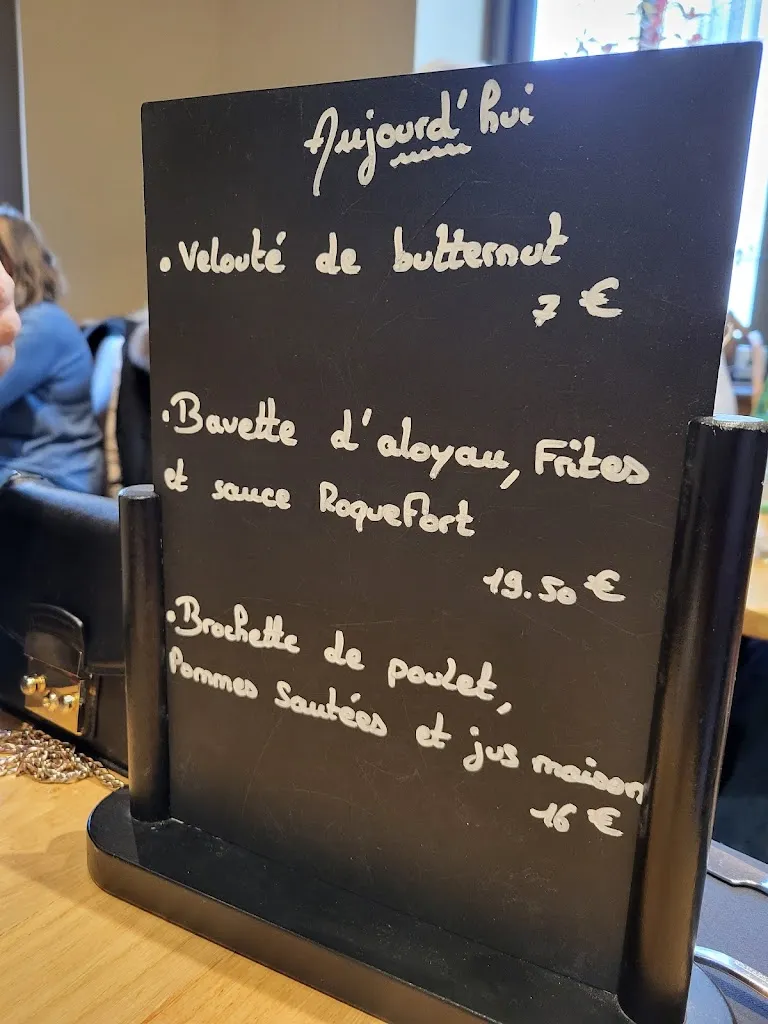 Aujourd'hui
• Velouté de butternut
7 €
• Bavette d'aloyau, Frites
et sauce Roquefort
19.50 €
• Brochette de poulet,
Pommes Sautées et jus maison
16 €